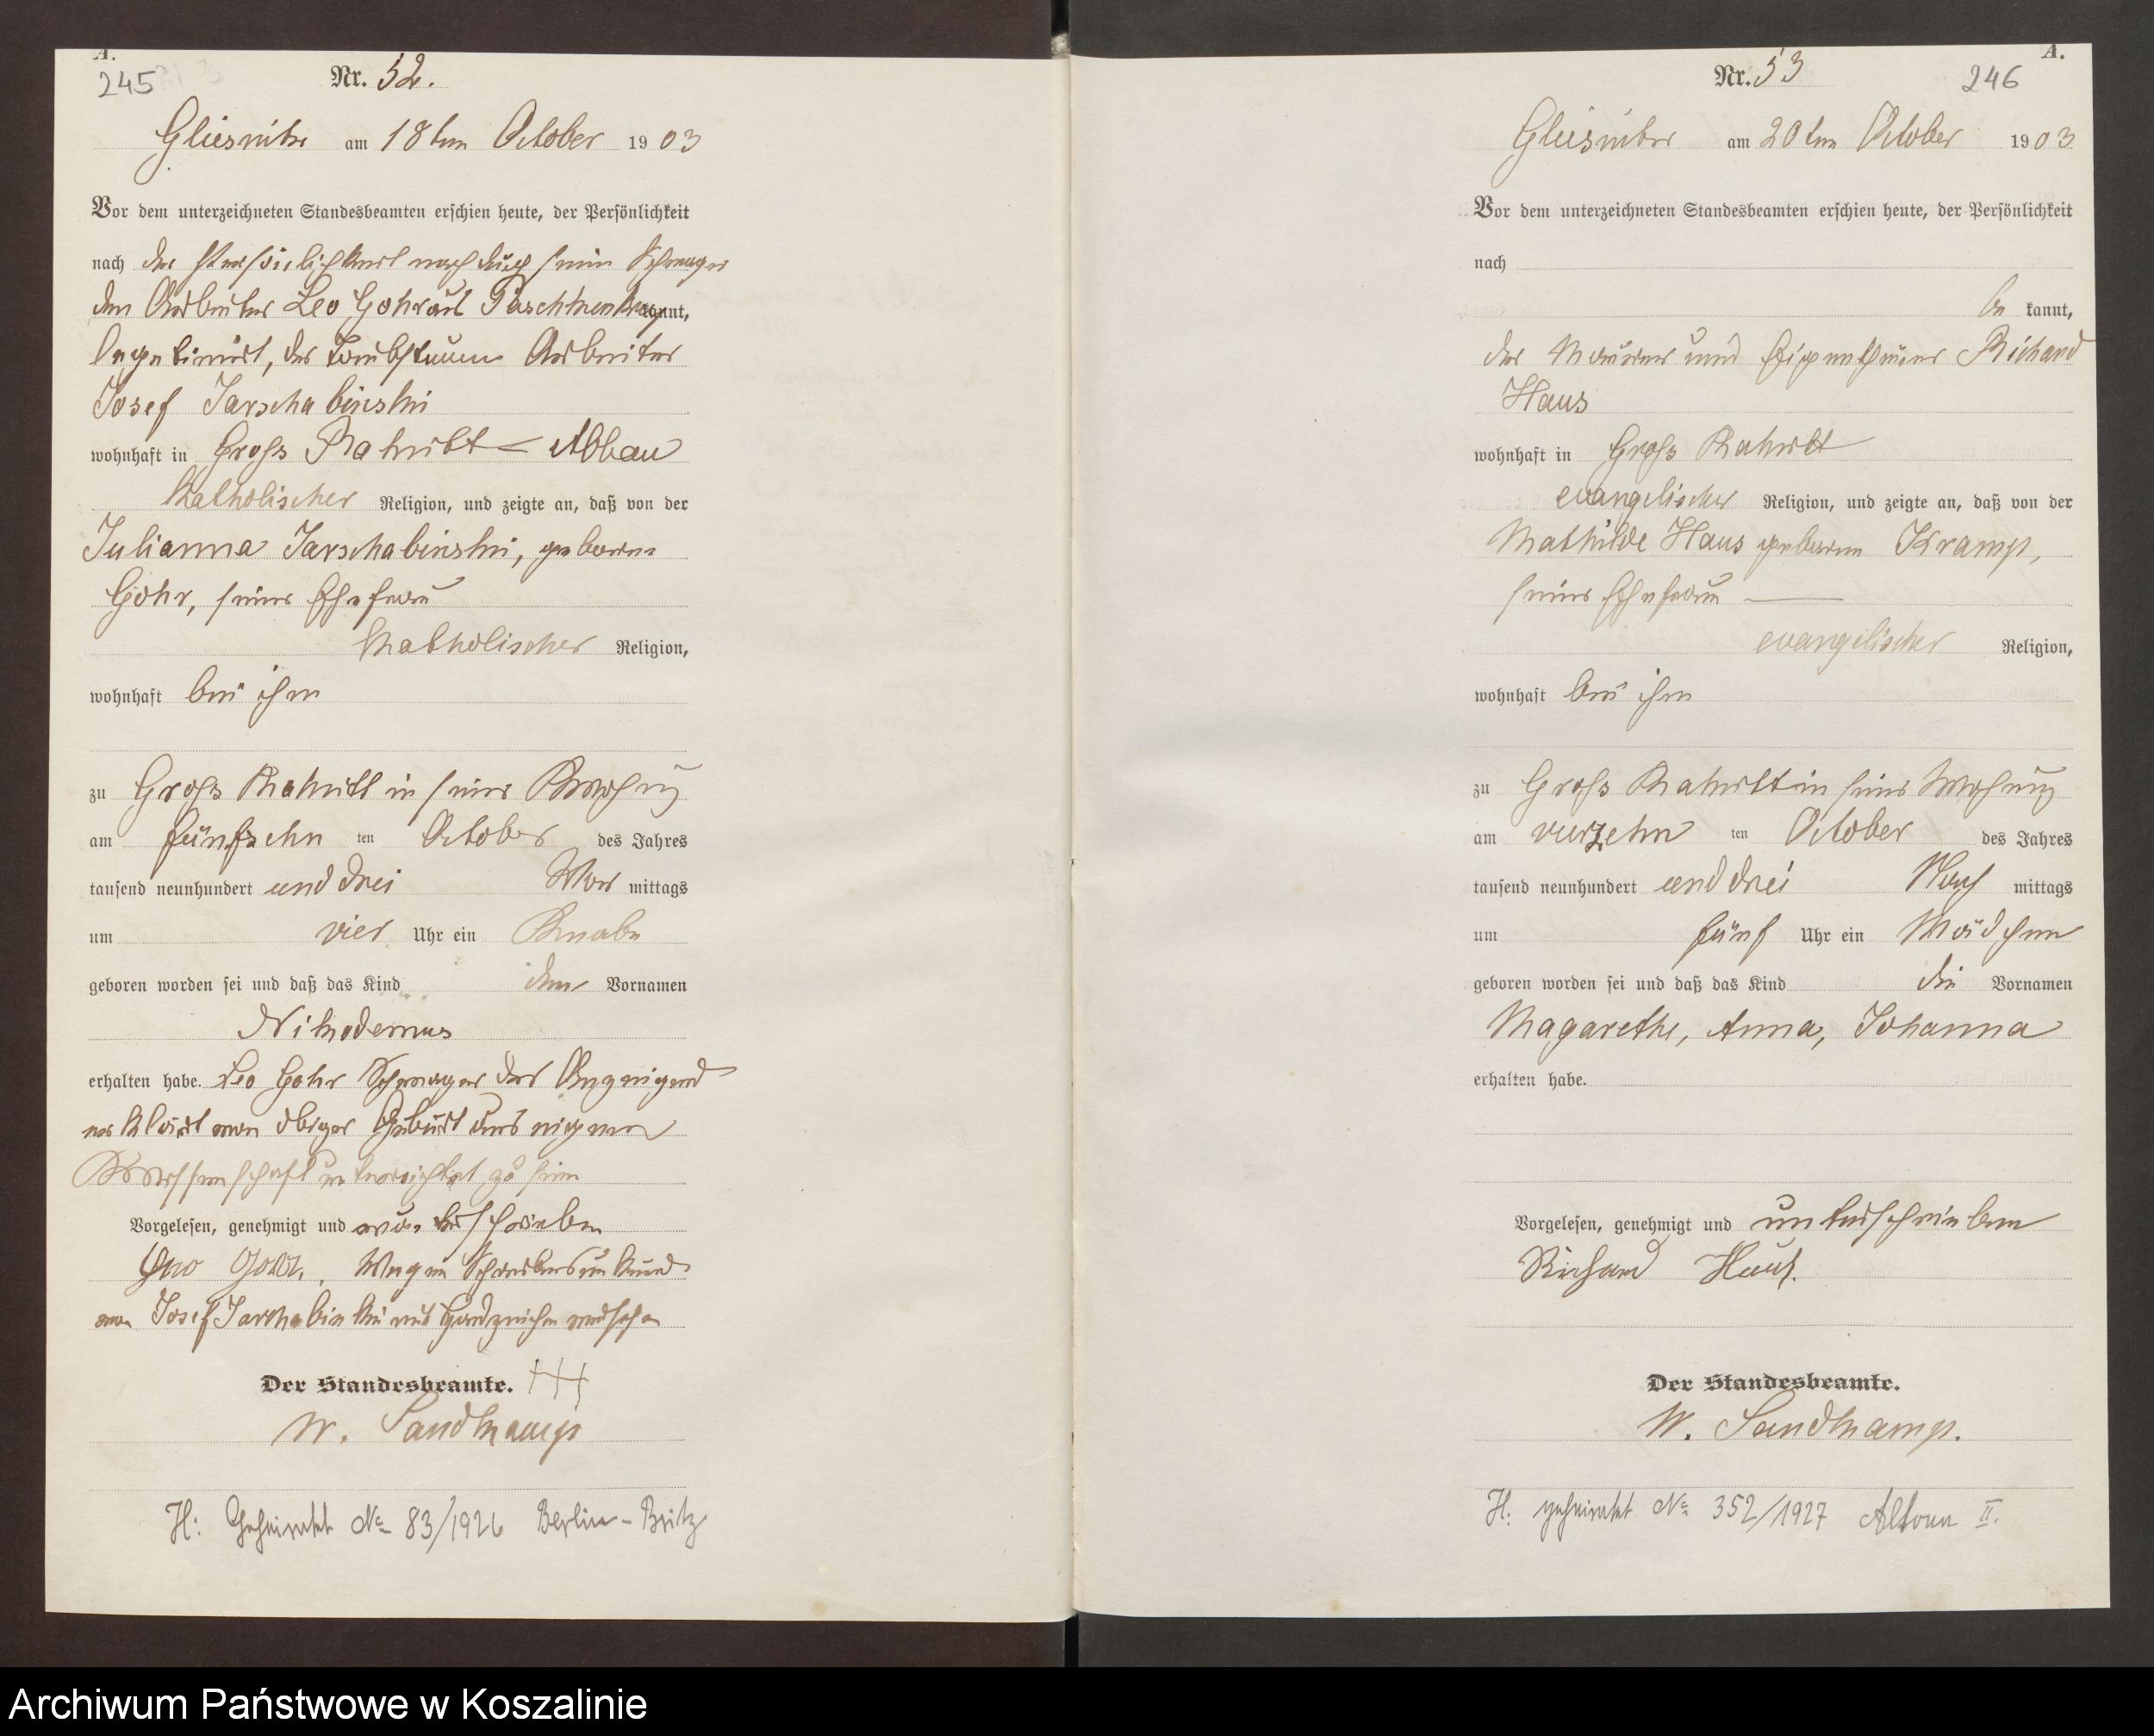 A.
245
Nr. 52.
Gliesnitz am 18ten October 1903
Vor dem unterzeichneten Standesbeamten erschien heute, der Persönlichkeit
nach der Persönlichkeit nach durch seinen Schwager
den Arbeiter Leo Gohr aus kannt,
legetimirt, der taubstumme Arbeiter
Josef Jarschabinski
wohnhaft in Gross Rakitt - Abbau
katholischer Religion, und zeigte an, daß von der
Julianna Jarschabinski, geborene
Gohr, seiner Ehefrau
katholischer Religion,
wohnhaft bei ihm
zu Gross Rakitt in seiner Wohnung
am fünfzehn ten October des Jahres
tausend neunhundert und drei Vor mittags
um vier Uhr ein Knabe
geboren worden sei und daß das Kind den Vornamen
Nikodemus
erhalten habe. Leo Gohr Schwager des Anzeigend
erklärt von obiger Geburt aus eigener
Wissenschaft unterrichtet zu sein
Vorgelesen, genehmigt und unterschrieben
Leo Gohr, Wegen Schreibensunkund
von Josef Jarschabinski mit Handzeichen versehen
+++
Der Standesbeamte.
W. Sandkamp
H: Geheiratet No 83/1926 Berlin-Britz
A.
246
Nr. 53
Gliesnitz am 20ten October 1903
Vor dem unterzeichneten Standesbeamten erschien heute, der Persönlichkeit
nach
be kannt,
der Maurer und Eigenthümer Richard
Haus
wohnhaft in Gross Rakitt
evangelischer Religion, und zeigte an, daß von der
Mathilde Haus geborene Kramp,
seiner Ehefrau
evangelischer Religion,
wohnhaft bei ihm
zu Gross Rakitt in seiner Wohnung
am vierzehn ten October des Jahres
tausend neunhundert und drei Nach mittags
um fünf Uhr ein Mädchen
geboren worden sei und daß das Kind die Vornamen
Magarethe, Anna, Johanna
erhalten habe.
Vorgelesen, genehmigt und unterschrieben
Richard Haus.
Der Standesbeamte.
W. Sandkamp.
H: geheiratet No 352/1927 Altona II.
Archiwum Państwowe w Koszalinie